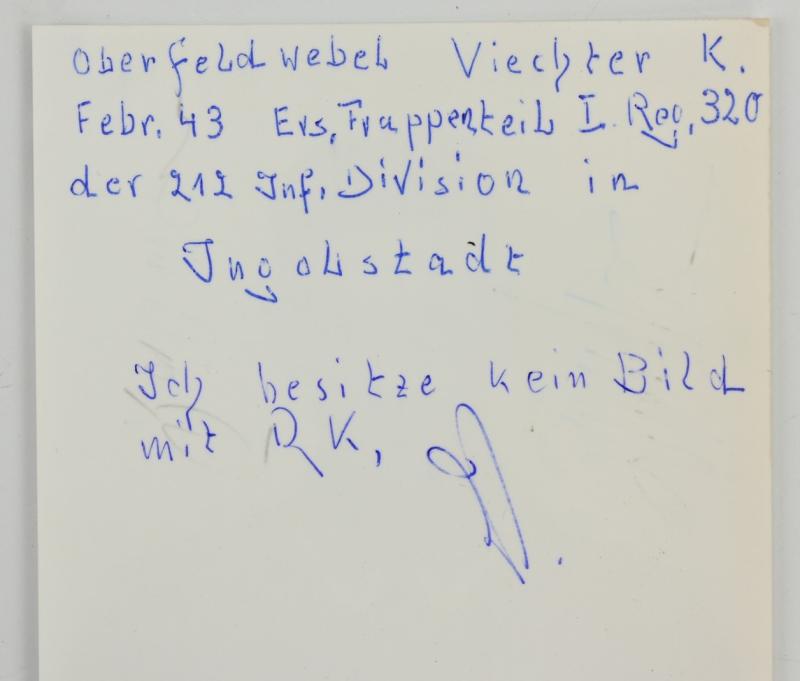 Oberfeldwebel Viechter K.
Febr. 43 Ers. Truppenteil I. Reg. 320
der 212 Inf. Division in
Ingolstadt
Ich besitze kein Bild
mit RK,